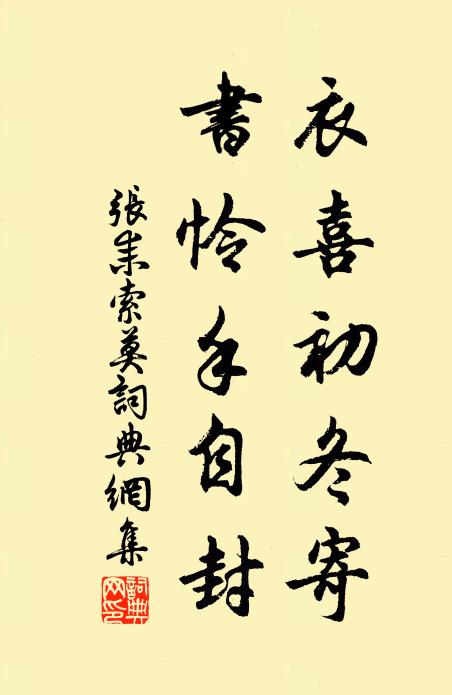 衣喜初冬寄
書怜手自封
張耒索莫詞典網集
詞典网印